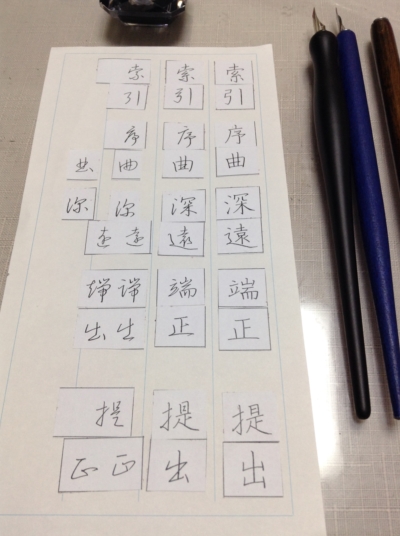 索引 序曲 深遠 端正 提出
索引 序曲 深遠 端正 提出
索引 序曲 深遠 端出 提正
曲 深遠 端出 正